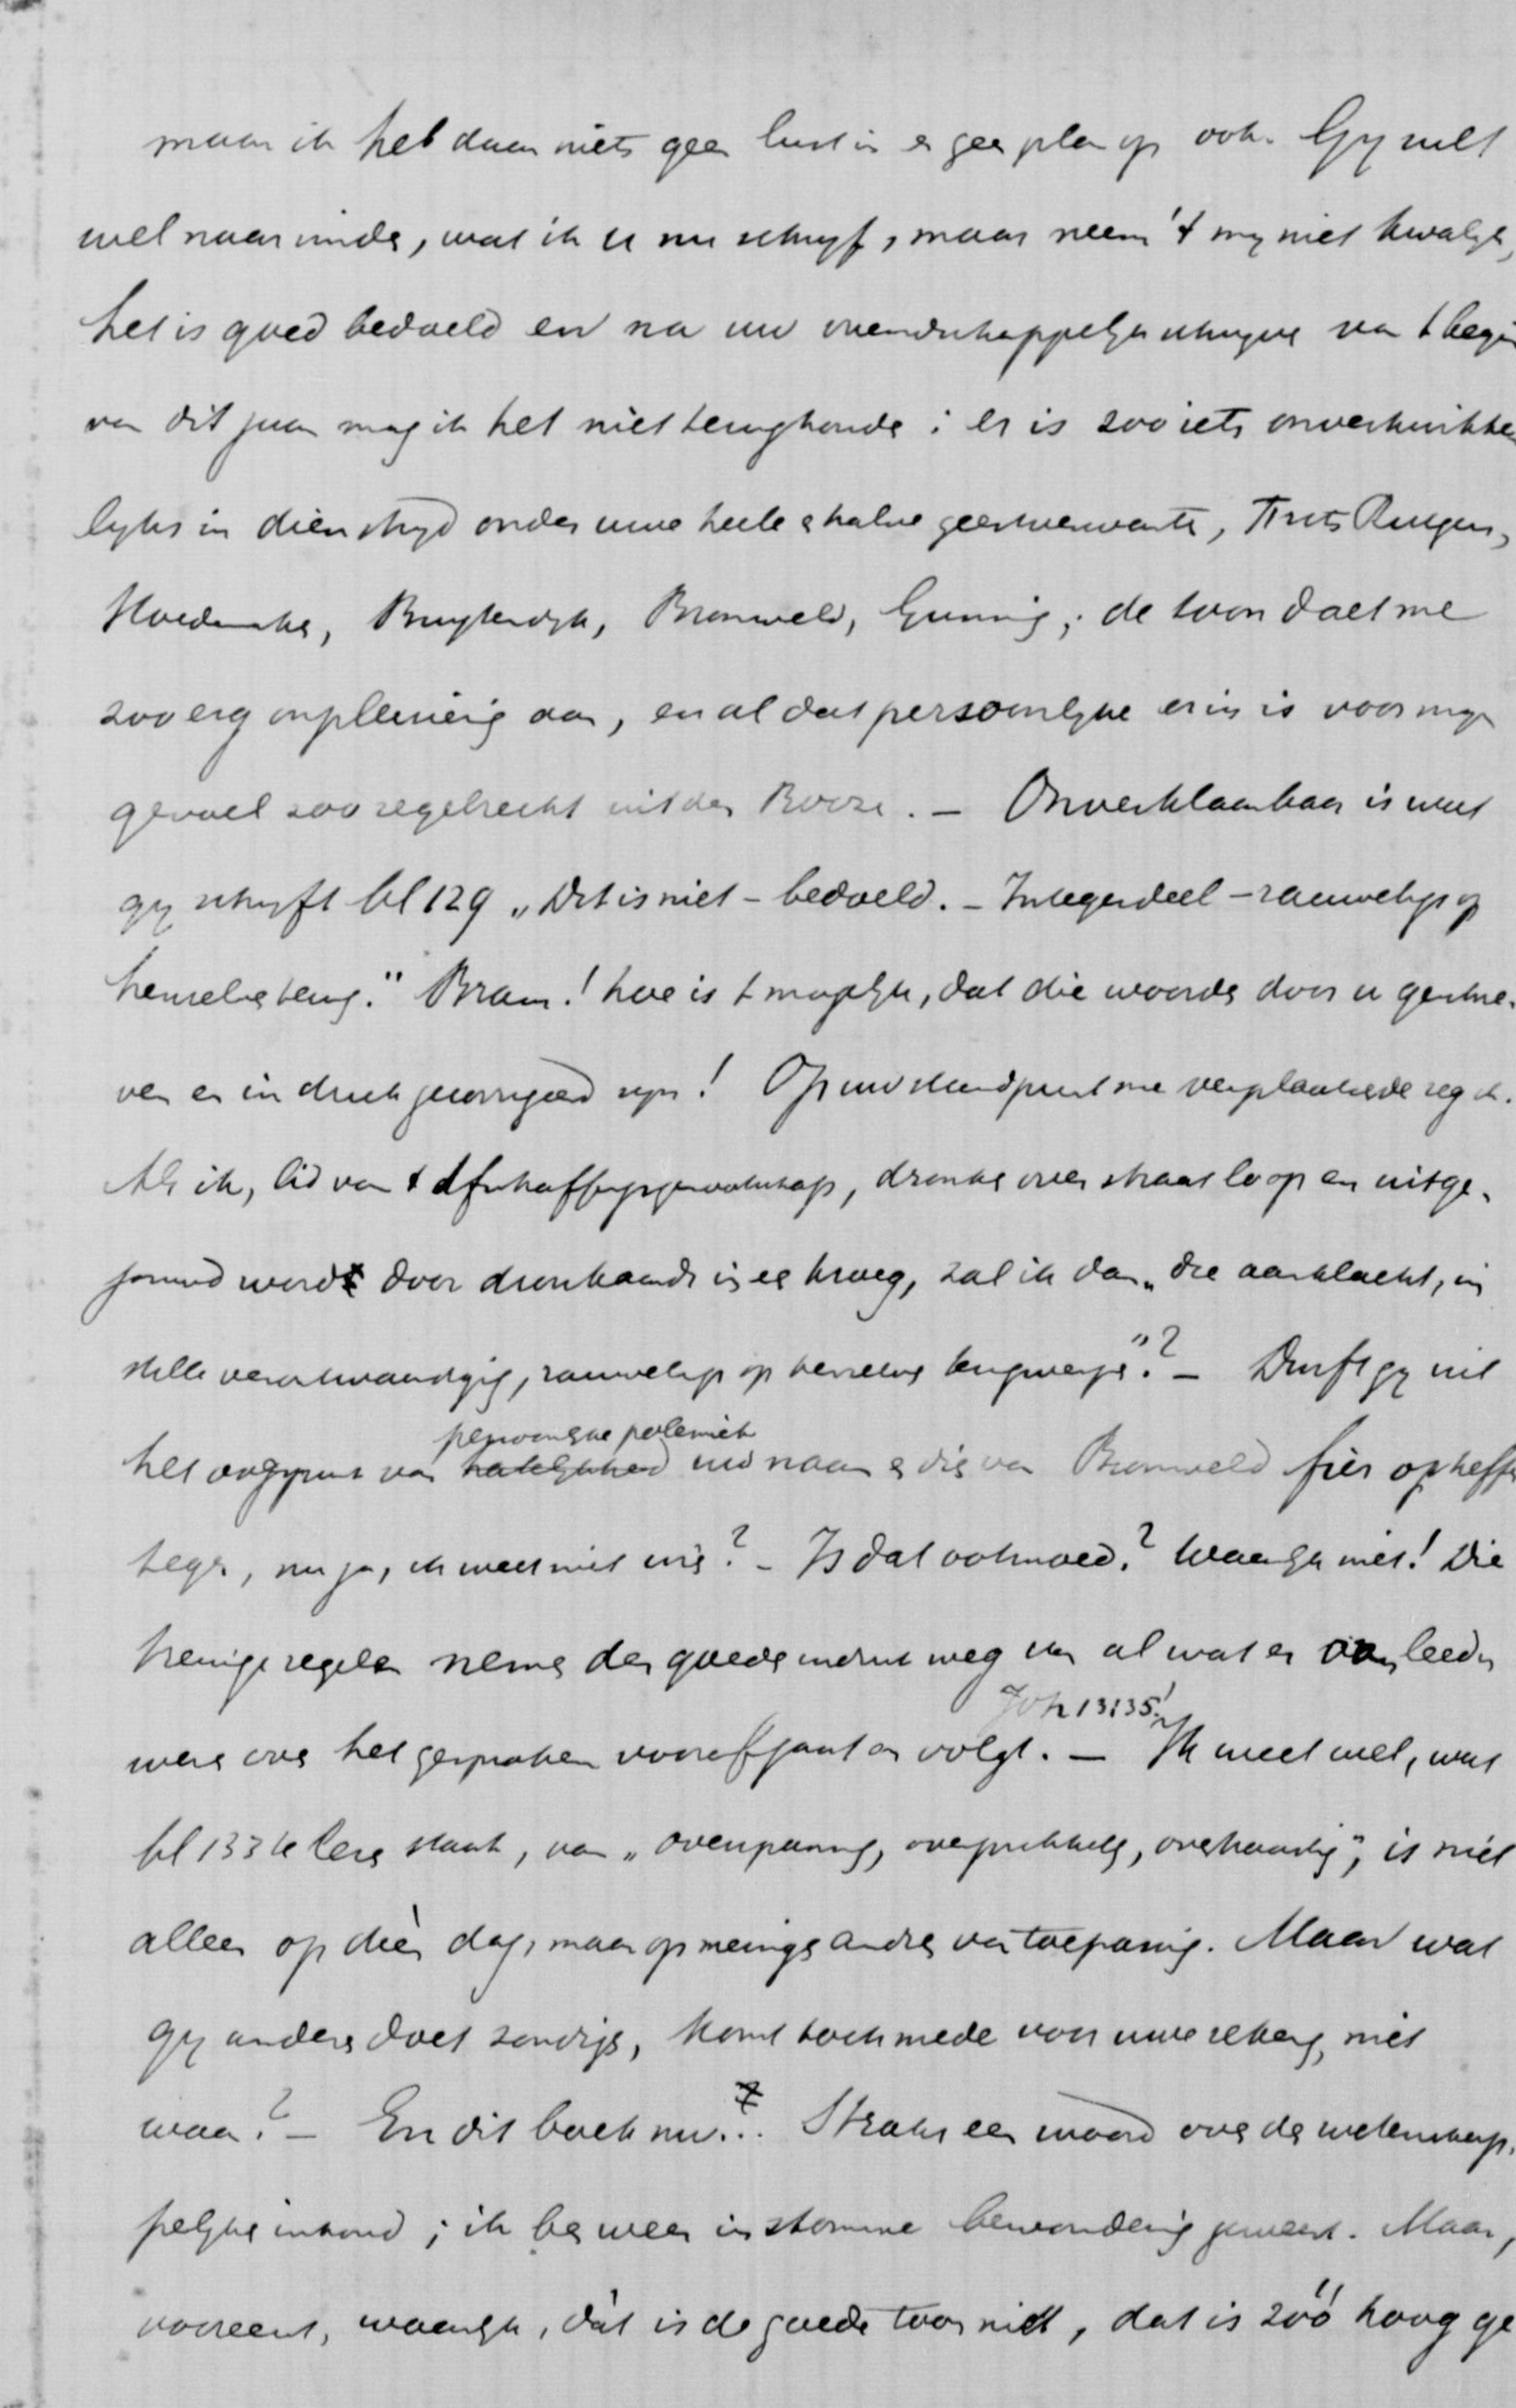 maar ik heb daar niets geen lust in en geen plan op ook. Gy zult
wel naar vinden, wat ik u nu schryf, maar neem 't my niet kwalyk,
het is goed bedoeld en na uw vriendschappelyk schryven van 't begin
van dit jaar mag ik het niet terughouden: er is zoo iets onverkwikke
lyks in dien stryd onder uwe heele en halve geestverwanten, Rutgers,
Hoedemaker, Buytendyk, Bronsveld, Gunning; de toon doet me
zoo erg onplezierig aan, en al dat persoonlyke erin is voor myn
gevoel zoo regelrecht uit den Booze. – Onverklaarbaar is wat
gy schryft bl 129 „Dit is niet – bedoeld. – Integendeel – rauwelyks op
henzelve terug." Bram! hoe is 't mogelyk, dat die woorden door u geschre-
ven en in druk gecorrigeerd zyn! Op uw standpunt me verplaatsende zeg ik.
Als ik, lid van 't Afschaffingsgenootschap, dronken over straat loop en uitge-
jouwd word door dronkaards in een kroeg, zal ik dan „die aanklacht, in
stille verontwaardiging, rauwelyks op henzelve terugwerpen"? – Durft gy uit
het oogpunt van persoonlyke polemiek uw naam en die van Bronsveld fier opheffen
tegen, nu ja, ik weet niet wie? – Is dat ootmoed? Waarlyk niet! Die
weinige regelen nemen den goeden indruk weg van al wat er aan leeds
wezen over het gesprokene voorafgaat en volgt. – Joh 13:35! Ik weet wel, wat
bl 133 te lezen staat, van „overspanning, overprikkeling, overhaasting", is niet
alleen op dièn dag, maar op menigen anderen van toepassing. Maar wat
gy anderen doet zondigen, komt toch mede voor uwe rekening, niet
waar? – En dit boek nu..? Straks een woord over den wetenschap-
pelyken inhoud; ik ben weer in stomme bewondering geweest. Maar,
vooreerst, waarlyk, dàt is de goede toon niet, dat is zóó hoog ge